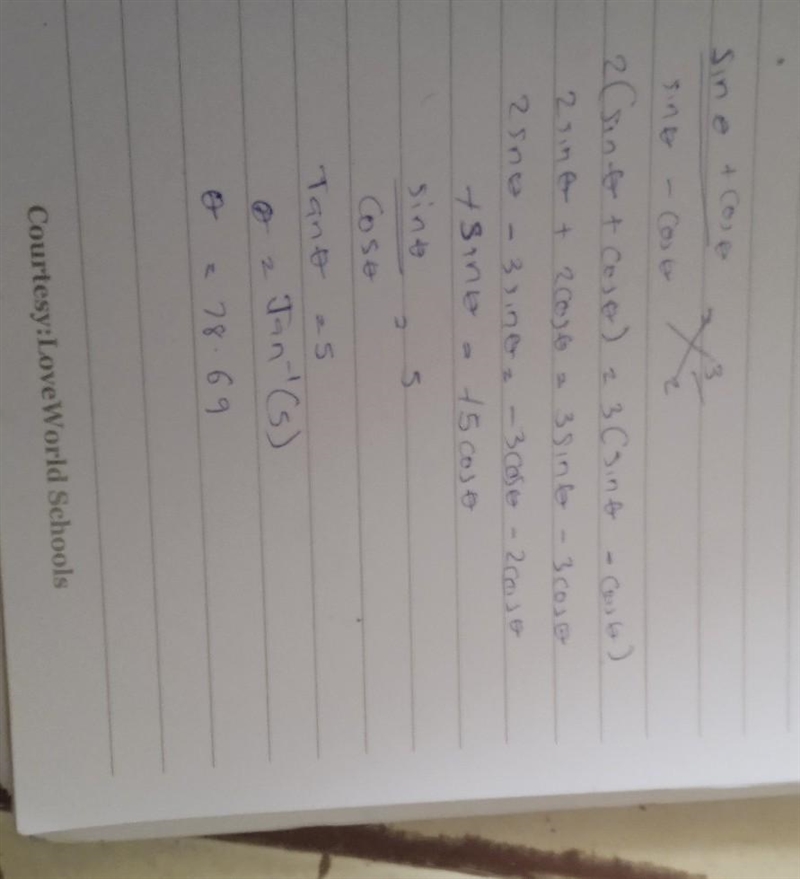 sinθ + cosθ = 3
sinθ - cosθ 2
2(sinθ + cosθ) = 3(sinθ - cosθ)
2sinθ + 2cosθ = 3sinθ - 3cosθ
2sinθ - 3sinθ = -3cosθ - 2cosθ
+sinθ = +5cosθ
sinθ = 5
cosθ
Tanθ = 5
θ = Tan⁻¹(5)
θ = 78.69
Courtesy:LoveWorld Schools